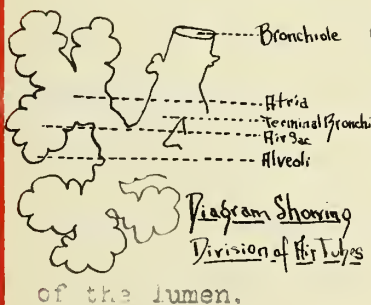 Bronchiole
Atria
Terminal Bronchi
Air Sac
Alveoli
Diagram Showing
Division of Air Tubes
of the lumen.